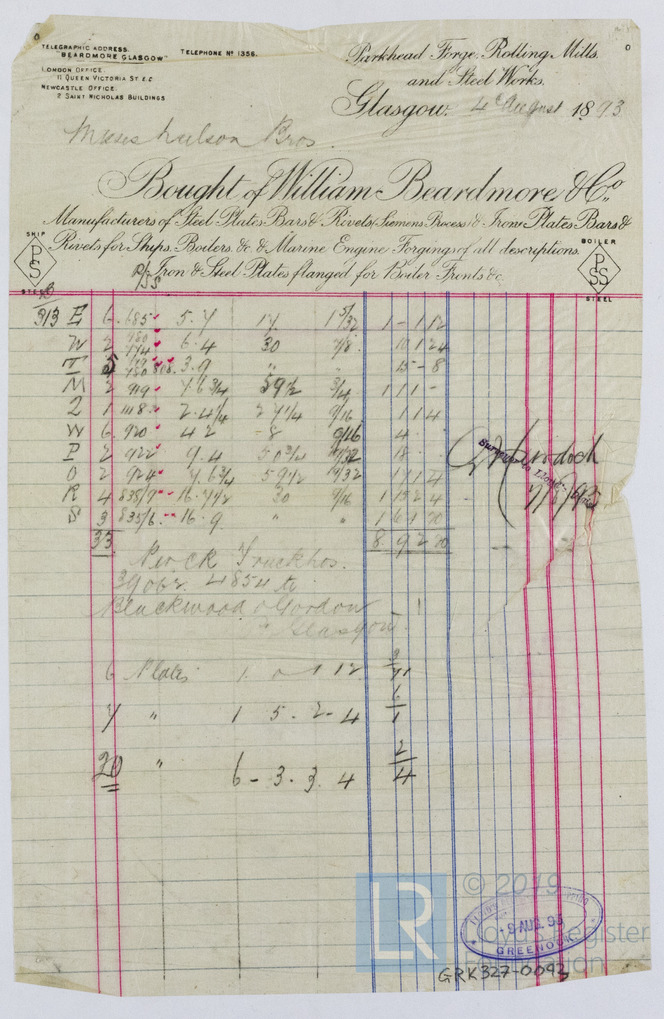 TELEGRAPHIC ADDRESS.
"BEARDMORE GLASGOW"
TELEPHONE No 1356.
LONDON OFFICE.
11 QUEEN VICTORIA ST E.C.
NEWCASTLE OFFICE.
2 SAINT NICHOLAS BUILDINGS
Parkhead Forge, Rolling Mills.
and Steel Works.
Glasgow. 4 August 1893
Bros.
Bought of William Beardmore & Co.
Manufacturers of Steel Plates Bars & Rivets, (Siemens Process) & Iron Plates Bars &
Rivets for Ships, Boilers, &c & Marine Engine Forgings of all descriptions.
Iron & Steel Plates flanged for Boiler Fronts &c.
SHIP
PS
STEEL
BOILER
PSS
STEEL
313 E 6 685 5.7 17 1 5/32 1 - 1 12
W 2 6.4 30 7/8 10 1 24
T 3.9 " " 15 - 8
M 2 919 7.6 3/4 59 1/2 3/4 1 1 1 -
2 1 2.4 1/4 27 1/4 9/16 1 1 4
W 6 920 4 2 - 8 9/16 4
P 2 922 9.4 50 3/4 18 -
O 2 924 7.6 3/4 59 1/2 19/32 17 1 4
R 4 835/7 16.7 1/2 30 9/16 1 13 2 4
S 3 835/6 16.9 " " 1 6 1 20
33 8. 9 2 20
Murdoch
7/8/93
Per CK Truck Nos.
4854 to
Blackwood & Gordon
Glasgow
6 Plates 1 0 1 12
7 " 1 5 - 2 - 4 6/1
20 " 6 - 3 . 3 . 4 2/4
© 2019
LR
Lloyd's Register
Foundation
- 8 AUG. 93
GREENOCK
GRK327-0092